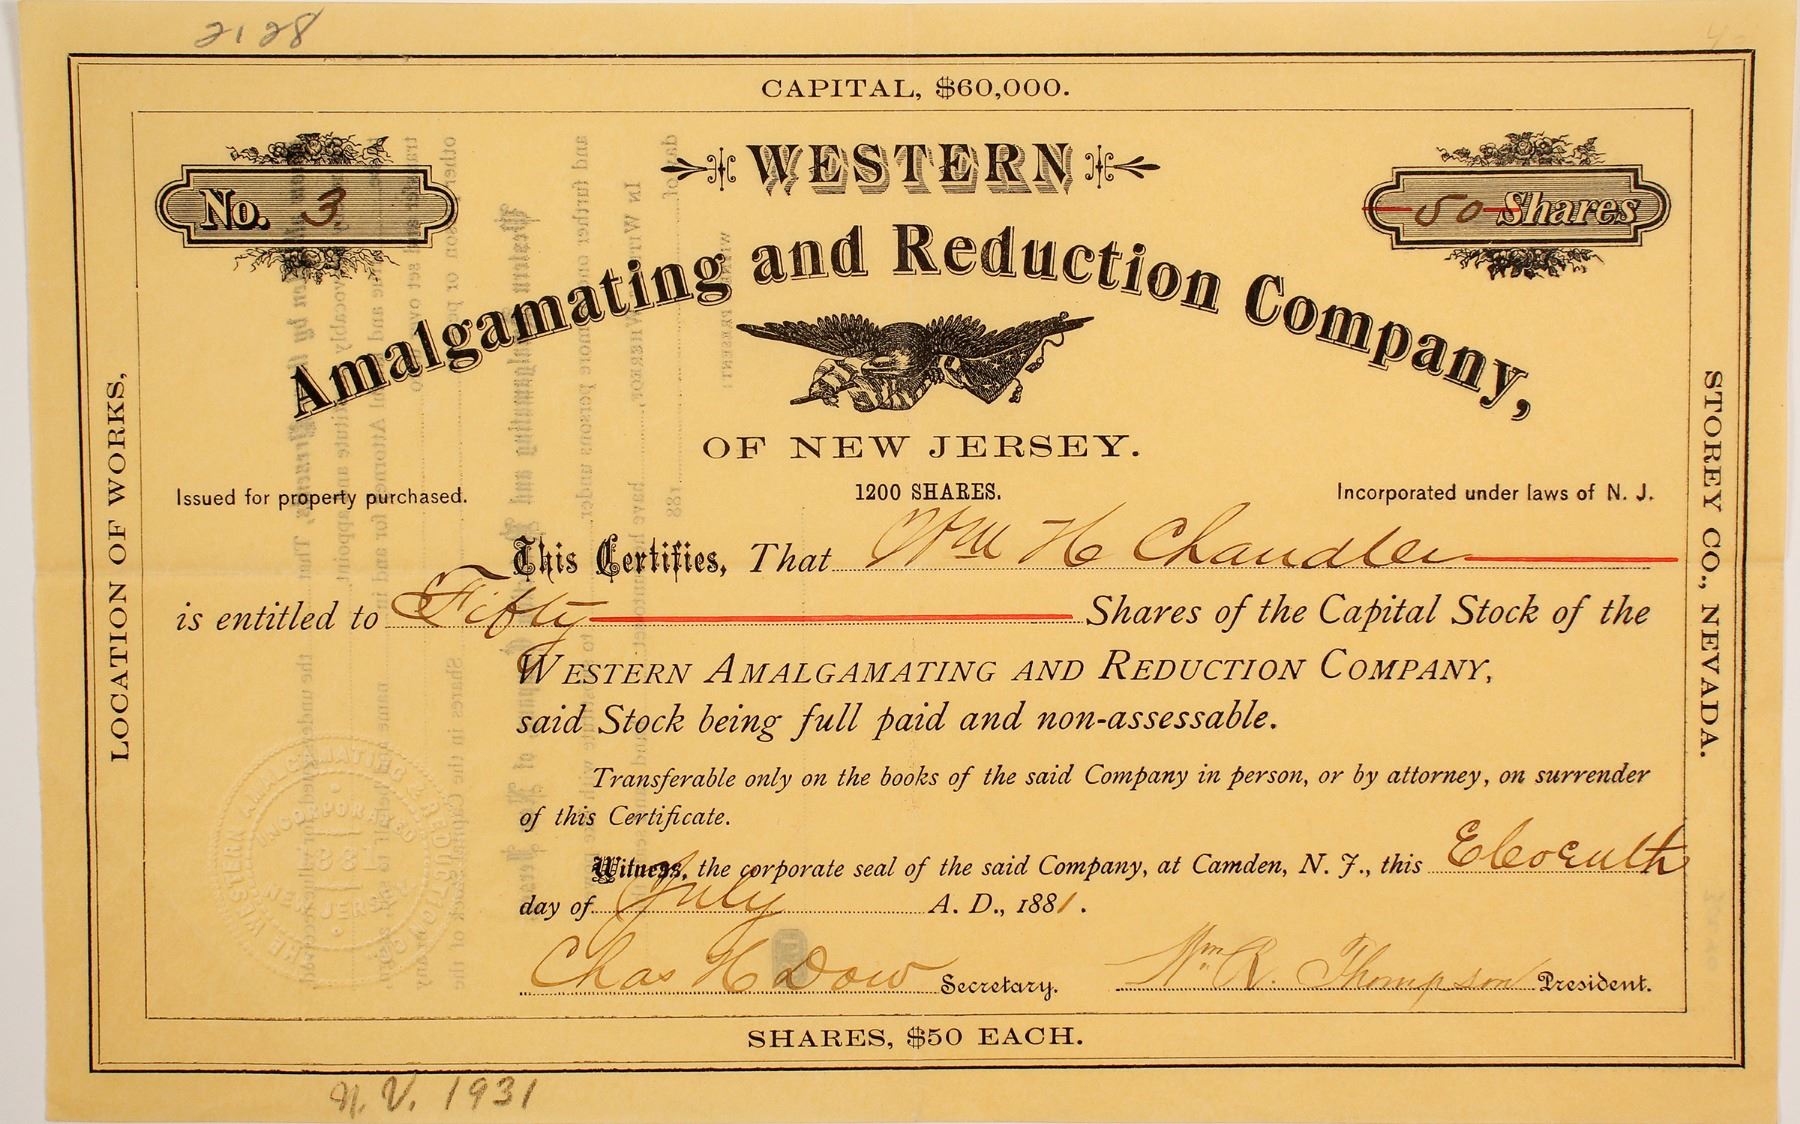 2128
CAPITAL, $60,000.
No. 3
WESTERN
50 Shares
Amalgamating and Reduction Company,
OF NEW JERSEY.
Issued for property purchased.
1200 SHARES.
Incorporated under laws of N. J.
LOCATION OF WORKS,
STOREY CO., NEVADA.
This Certifies, That Wm H Chandler
is entitled to Fifty Shares of the Capital Stock of the
WESTERN AMALGAMATING AND REDUCTION COMPANY,
said Stock being full paid and non-assessable.
Transferable only on the books of the said Company in person, or by attorney, on surrender
of this Certificate.
Witness, the corporate seal of the said Company, at Camden, N. J., this Eleventh
day of July A. D., 1881.
THE WESTERN AMALGAMATING & REDUCTION CO.
INCORPORATED
1881
NEW JERSEY
Chas H Dow Secretary.
Wm R. Thompson President.
SHARES, $50 EACH.
N.V. 1931